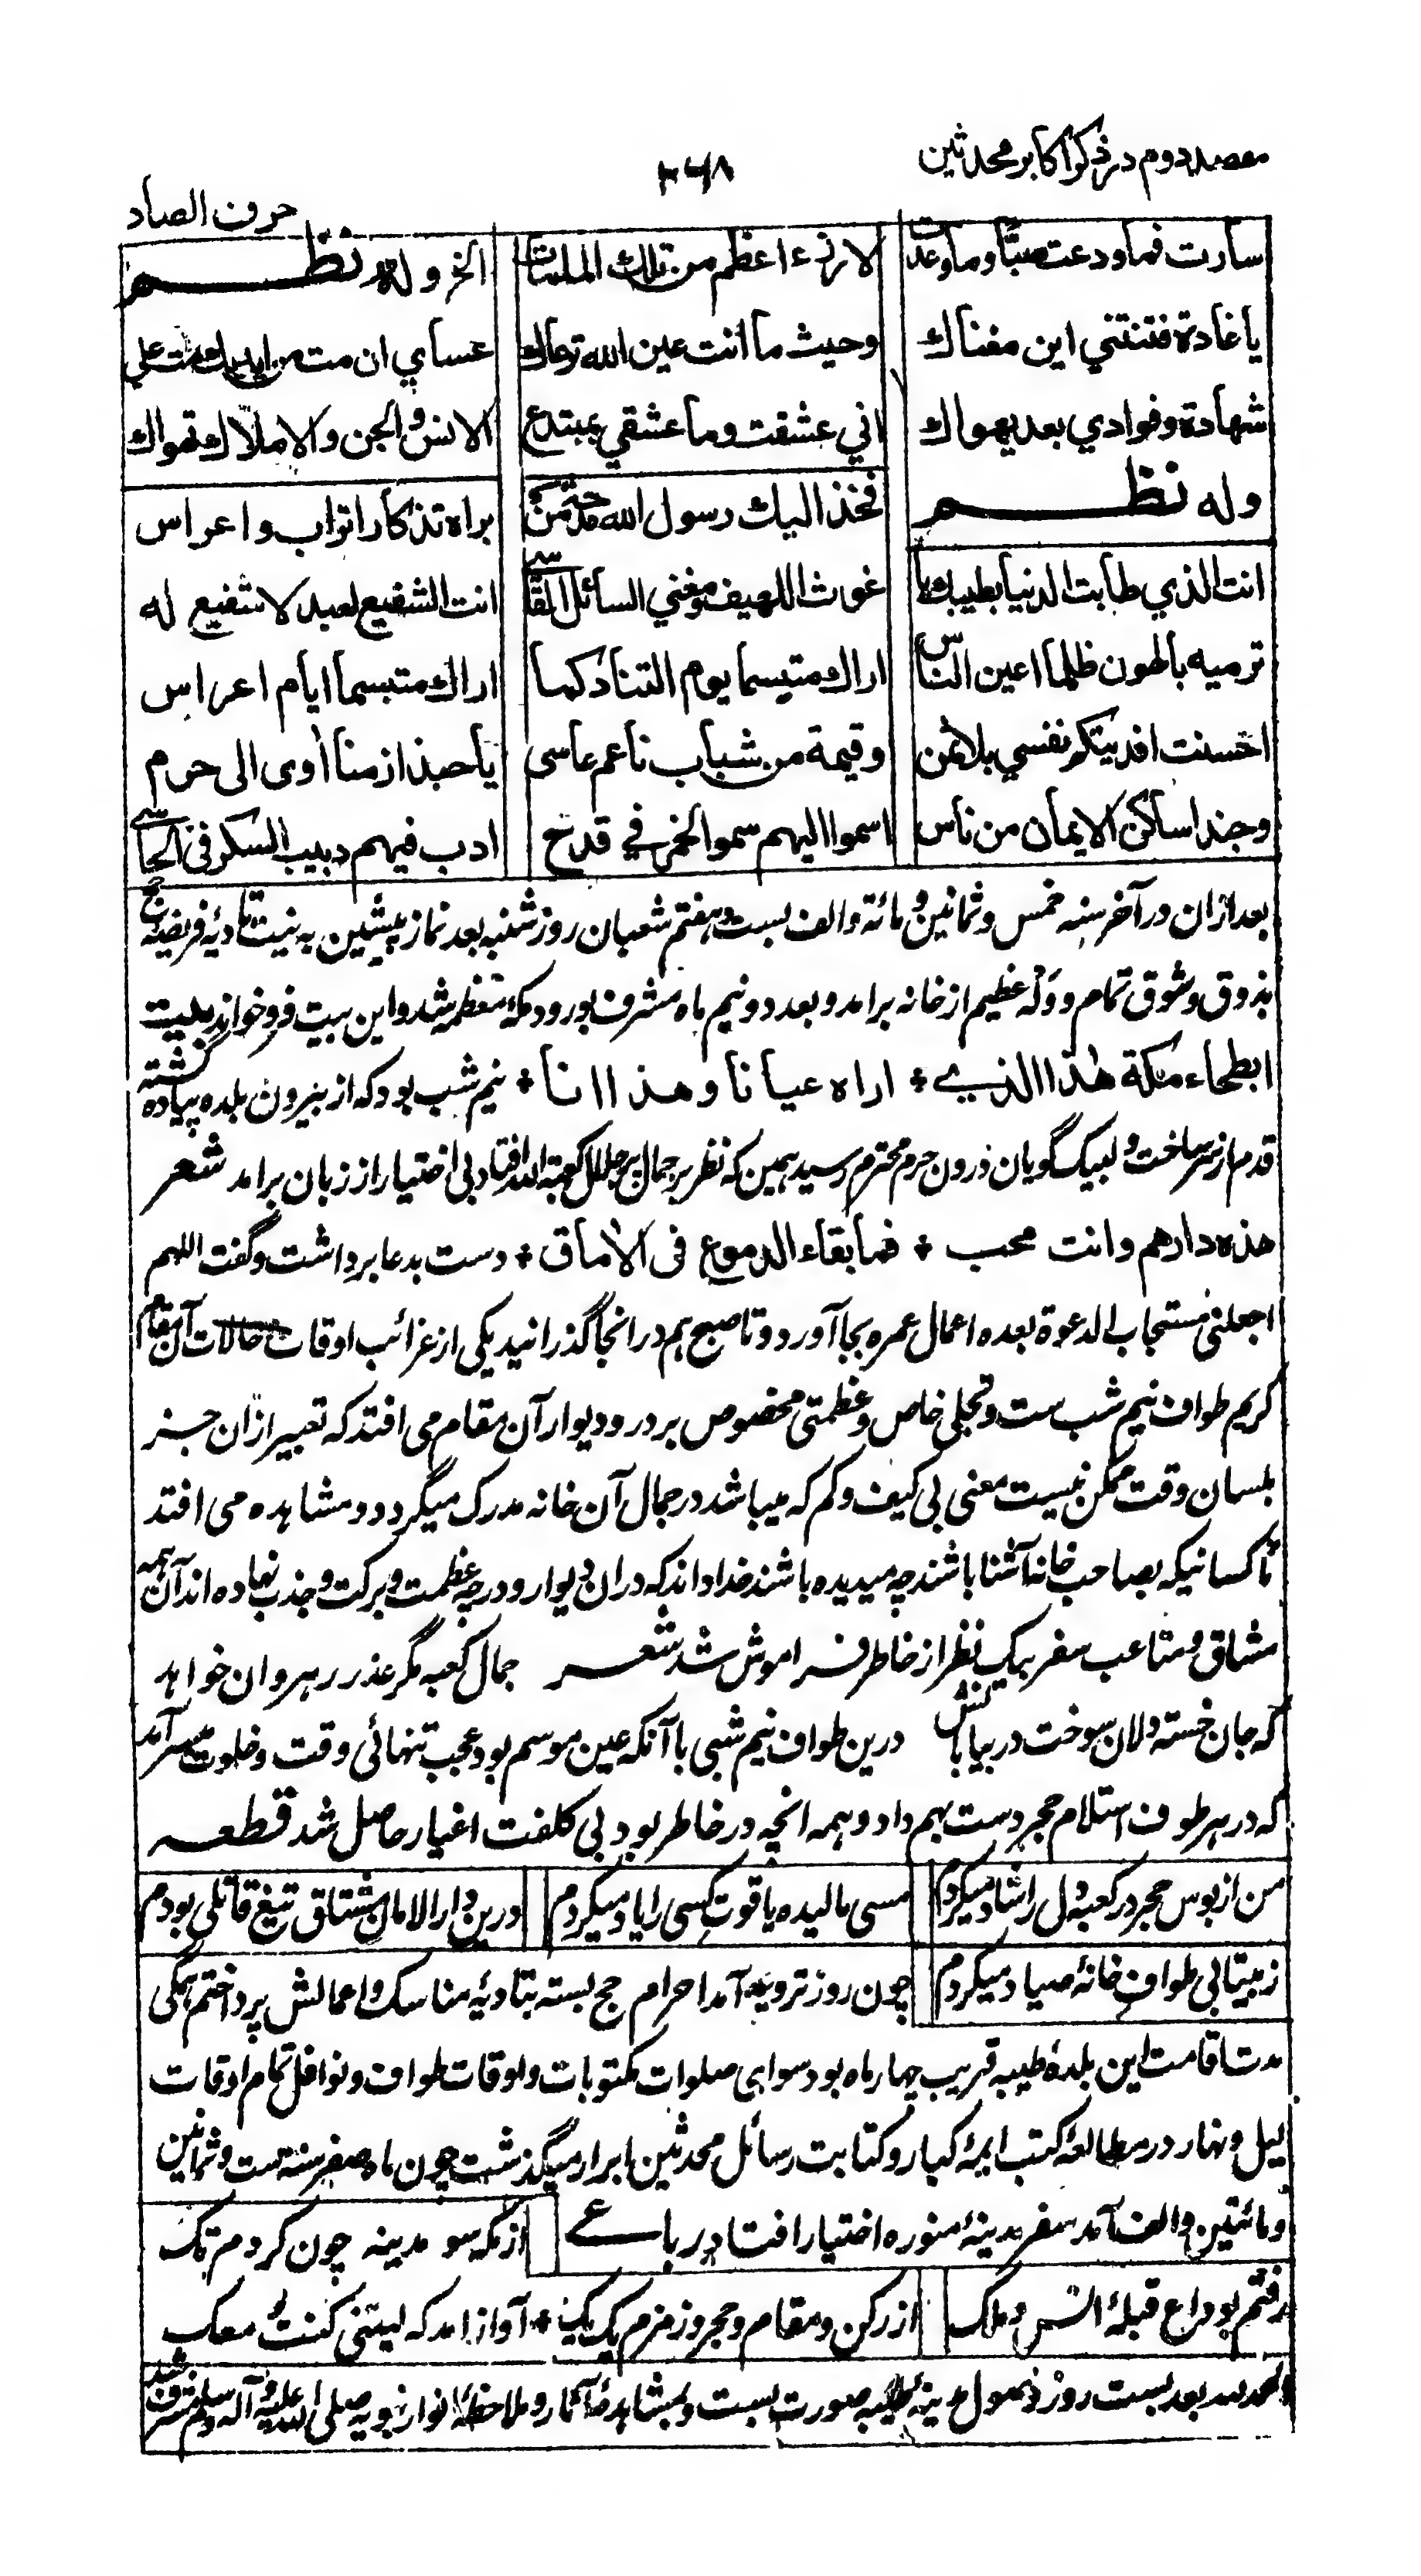 مقصد دوم در ذکر اکابر محدثین
۲۶۸
حرف الصاد
سارت فما ودعت صبًّا وما وعدت
لا رزء اعظم من تلك الملمات
الخ وله نظم
يا غادة فتنتني اين مغناك
وحيث ما انت عين الله ترعاك
عساي ان مت من علي
شهادة وفوادي بعد يهواك
اني عشقت وما عشقي بمبتدع
الانس والجن والاملاك تهواك
وله نظم
فخذ اليك رسول الله مدحة من
براه تذكار اتراب واعراس
انت الذي طابت الدنيا بطيبك يا
غوث اللهيف ومغني السائل القاسي
انت الشفيع لعبد لا شفيع له
ترميه بالهون ظلما اعين الناس
اراك متبسما يوم التناد كما
اراك متبسما ايام اعراس
احسنت افديتكم نفسي بلا ثمن
وقيمة من شباب ناعم عاسى
يا حبذا زمنا أوى الى حرم
وجندا ساكن الايمان من ناس
اسموا اليهم سمو الخمر في قدح
ادب فيهم دبيب السكر فى الحاسي
بعد ازان در آخر سنه خمس وثمانین و مائة والف بست وهفتم شعبان روز شنبه بعد نماز پیشین به نیت تادیۀ فریضۀ حج
بذوق و شوق تمام و وله عظیم از خانه برامد و بعد دو نیم ماه مشرف بورود مکۀ معظمه شد و این بیت فرو خواند بیت
ابطحاء مكة هذا الذي * اراه عيانا وهذا انا * نیم شب بود که از بیرون بلده پیاده گشته
قدم از سر ساخت و لبیک گویان درون حرم محترم رسید همین که نظر بر جمال پرجلال کعبة الله افتاد بی اختیار از زبان برامد شعر
هذه دارهم وانت محب * فما بقاء الدموع فى الأماق * دست بدعا برداشت و گفت اللهم
اجعلنی مستجاب الدعوة بعده اعمال عمره بجا آورد و تا صبح هم در انجا گذرانید یکی از غرائب اوقات حالات آن مقام
کریم طواف نیم شب ست و تجلی خاص و عظمتی مخصوص بر در و دیوار آن مقام می افتد که تعبیر ازان جز
بلسان وقت ممکن نیست معنی بی کیف و کم که میباشد در جمال آن خانه مدرک میگردد و مشاهده می افتد
تا کسانیکه بصاحب خانه آشنا باشند چه میدیده باشند خدا داند که دران دیوار و در چه عظمت و برکت و جذب نهاده اند آن همه
مشاق و متاعب سفر بیک نظر از خاطر فراموش شد شعر جمال کعبه مگر عذر رهروان خواهد
که جان خسته دلان سوخت در بیابانش درین طواف نیم شبی با آنکه عین موسم بود عجب تنهائی وقت و خلوت میسر آمد
که در هر طوف استلام حجر دست بهم داد و همه انچه در خاطر بود بی کلفت اغیار حاصل شد قطعه
من از بوس حجر در کعبه دل را شاد میکردم
مسی مالیده یاقوت کسی را یاد میکردم
درین دار الامان مشتاق تیغ قاتلی بودم
ز بیتابی طواف خانۀ صیاد میکردم
چون روز ترویه آمد احرام حج بسته بتادیۀ مناسک و اعمالش پرداختم همگی
مدت اقامت این بلدۀ طیبه قریب چهار ماه بود سوای صلوات مکتوبات و اوقات طواف و نوافل تمام اوقات
لیل و نهار در مطالعۀ کتب ایمۀ کبار و کتابت رسائل محدثین ابرار میگذشت چون ماه صفر سنه ست و ثمانین
و مائتین والف آمد سفر مدینۀ منوره اختیار افتاد رباعی
از مکه سو مدینه چون کردم تک
رفتم بوداع قبلۀ انس و ملک
از رکن و مقام و حجر و زمزم یک یک * آواز امد که لیتنی کنت معک
الحمد لله بعد بست روز وصول مدینۀ طیبه صورت بست و بمشاهدۀ آثار و ملاحظۀ انوار نبویه صلی الله علیه وآله وسلم مشرف شد